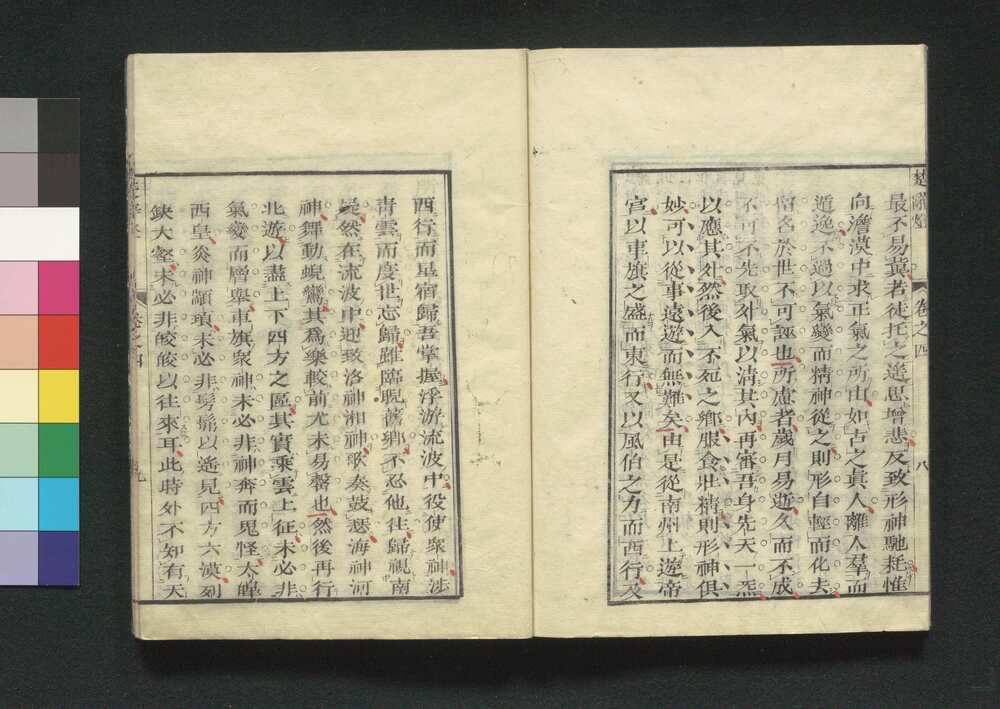 楚辭燈 卷之四 八
最不易冀若徒托之遙思增悲反致形神馳抂惟
向澹漠中求正氣之所由如古之真人離人羣而
遁逸不過以氣變而精神從之則形自輕而化去
名於世不可誣也所慮者歲月易逝久而不成
不可不先取外氣以清其內再審吾身先天一炁
以應其外然後入不死之鄉服食壯精則形神俱
妙可以從事遠遊而無難矣由是從南州上遊帝
宮以車旗之盛而東行又以風伯之力而西行又
西行而星宿歸吾掌握浮游流波中役使眾神涉
青雲而度世忘歸雖臨睨舊鄉不忍他往歸視南
疑然在流波中迎致洛神湘神歌奏鼓瑟海神河
神舞動蜺鸞其為樂較前尤未易罄也然後再行
北遊以盡上下四方之區其實乘雲上征未必非
氣變而層舉車旗衆神未必非神奔而鬼怪太皡
西皇炎神顓頊未必非髣髴以遙見四方六漠列
缺大壑未必非皎皎以往來耳此時外不知有天
卷之四 九